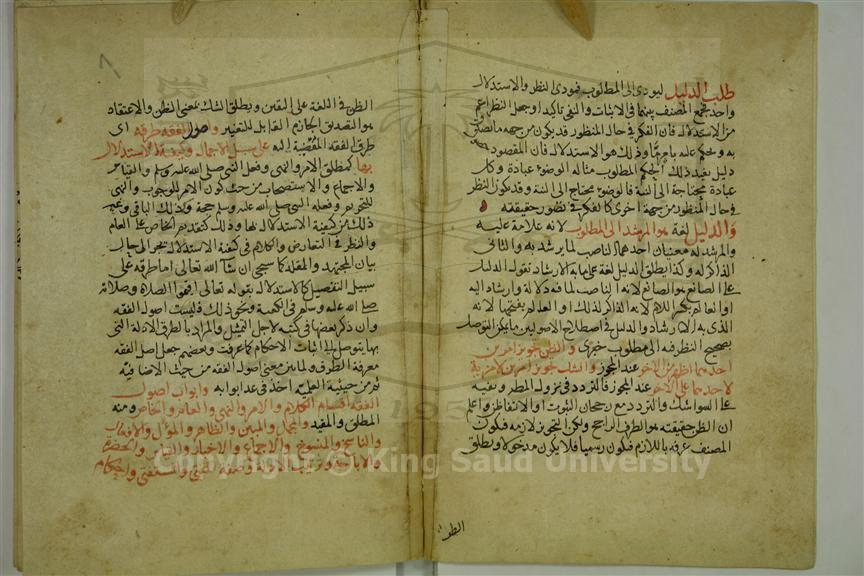 طلب الدليل ليودي الى المطلوب فمودى النظر والاستدلال
واحد فجمع المصنف بينهما في الاثبات والنفي تاكيدا وجعل النظر اعم
من الاستدلال فان الفكر في حال المنظور قد يكون من جهة
به ويحكم عليه وذلك هو الاستدلال فان المقصود
دليل يفيد ذلك الحكم المطلوب مثاله الوضوء عبادة وكل
عبادة محتاجة الى النية فالوضوء محتاج الى النية وقد يكون النظر
في حال المنظور من جهة اخرى كالفكر في تصور حقيقته
والدليل لغة هو المرشد الى المطلوب لانه علامة عليه
والمرشد له معنيان احدهما الناصب لما يرشد به والثاني
الذاكر له وكذا يطلق الدليل لغة على ما به الارشاد نقول الدليل
على الصانع هو الصانع لانه الناصب لما فيه دلالة وارشاد اليه
او العالم بكسر اللام لانه الذاكر لذلك او العالم بفتحها لانه
الذي به الارشاد والدليل في اصطلاح الاصوليين ما يمكن التوصل
بصحيح النظر فيه الى مطلوب خبري والظن تجويز امرين
احدهما اظهر من الاخر عند المجوز والشك تجويز امرين لا مزية
لاحدهما على الاخر عند المجوز فالتردد في نزول المطر ونفيه
على السواء شك والتردد مع رجحان الثبوت او الانتفاء ظن واعلم
ان الظن حقيقته هو الطرف الراجح ولكن التجويز لازمه فيكون
المصنف عرفه باللازم فيكون رسميا فلا يكون مدخولا ويطلق
الظن في اللغة على اليقين ويطلق الشك بمعنى الظن والاعتقاد
هو التصديق الجازم القابل للتغيير واصول الفقه طرقه اي
طرق الفقه المفضية اليه على سبيل الاجمال وكيفية الاستدلال
بها كمطلق الامر والنهي وفعل النبي صلى الله عليه وسلم والقياس
والاجماع والاستصحاب من حيث كون الامر للوجوب والنهي
للتحريم وفعله النبي صلى الله عليه وسلم حجة وكذلك الباقي وغير
ذلك من كيفية الاستدلال بها وذلك كتقديم الخاص على العام
والنظر في التعارض والكلام في كيفية الاستدلال يجر الى
بيان المجتهد والمقلد كما سيجي ان شا الله تعالى اما طرقه على
سبيل التفصيل كالاستدلال بقوله تعالى اقيموا الصلاة وصلاته
صلى الله عليه وسلم في الكعبة ونحو ذلك فليست اصول الفقه
وان ذكر بعضها في كتبه لاجل التمثيل والمراد بالطرق الادلة التي
بها يتوصل الى اثبات الاحكام كما عرفت وبعضهم جعل اصول الفقه
معرفة الطرق ولما بين معنى اصول الفقه من حيث الاضافية
ثم من حيثية العلمية اخذ في عد ابوابه وابواب اصول
الفقه اقسام الكلام والامر والنهي والعام والخاص ومنه
المطلق والمقيد والمجمل والمبين والظاهر والمؤول والافعال
والناسخ والمنسوخ والاجماع والاخبار والقياس والحظر
والاباحة وترتيب الادلة وصفة المفتي والمستفتي واحكام
Copyright © King Saud University
195